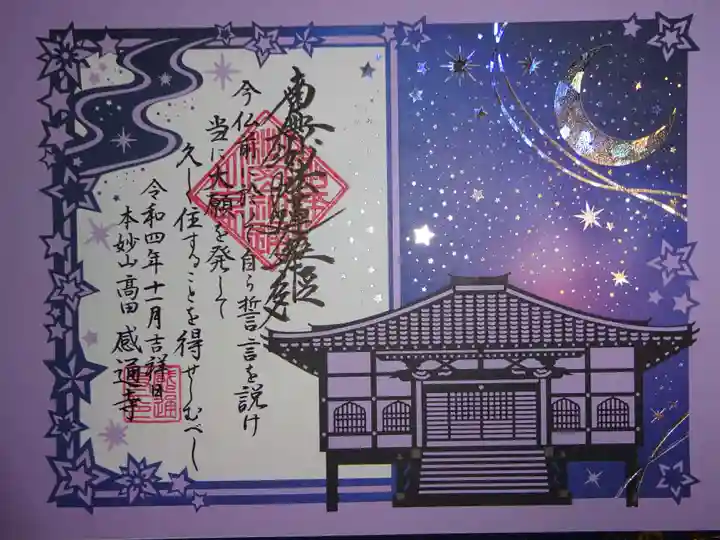 南無妙法蓮華経
今仏前に於いて自ら誓言を説け
当に大願を発して
久しく住することを得せしむべし
令和四年十一月吉祥日
本妙山高田感通寺